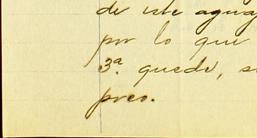 de este agua
por lo que
3ª quede, s
preo.